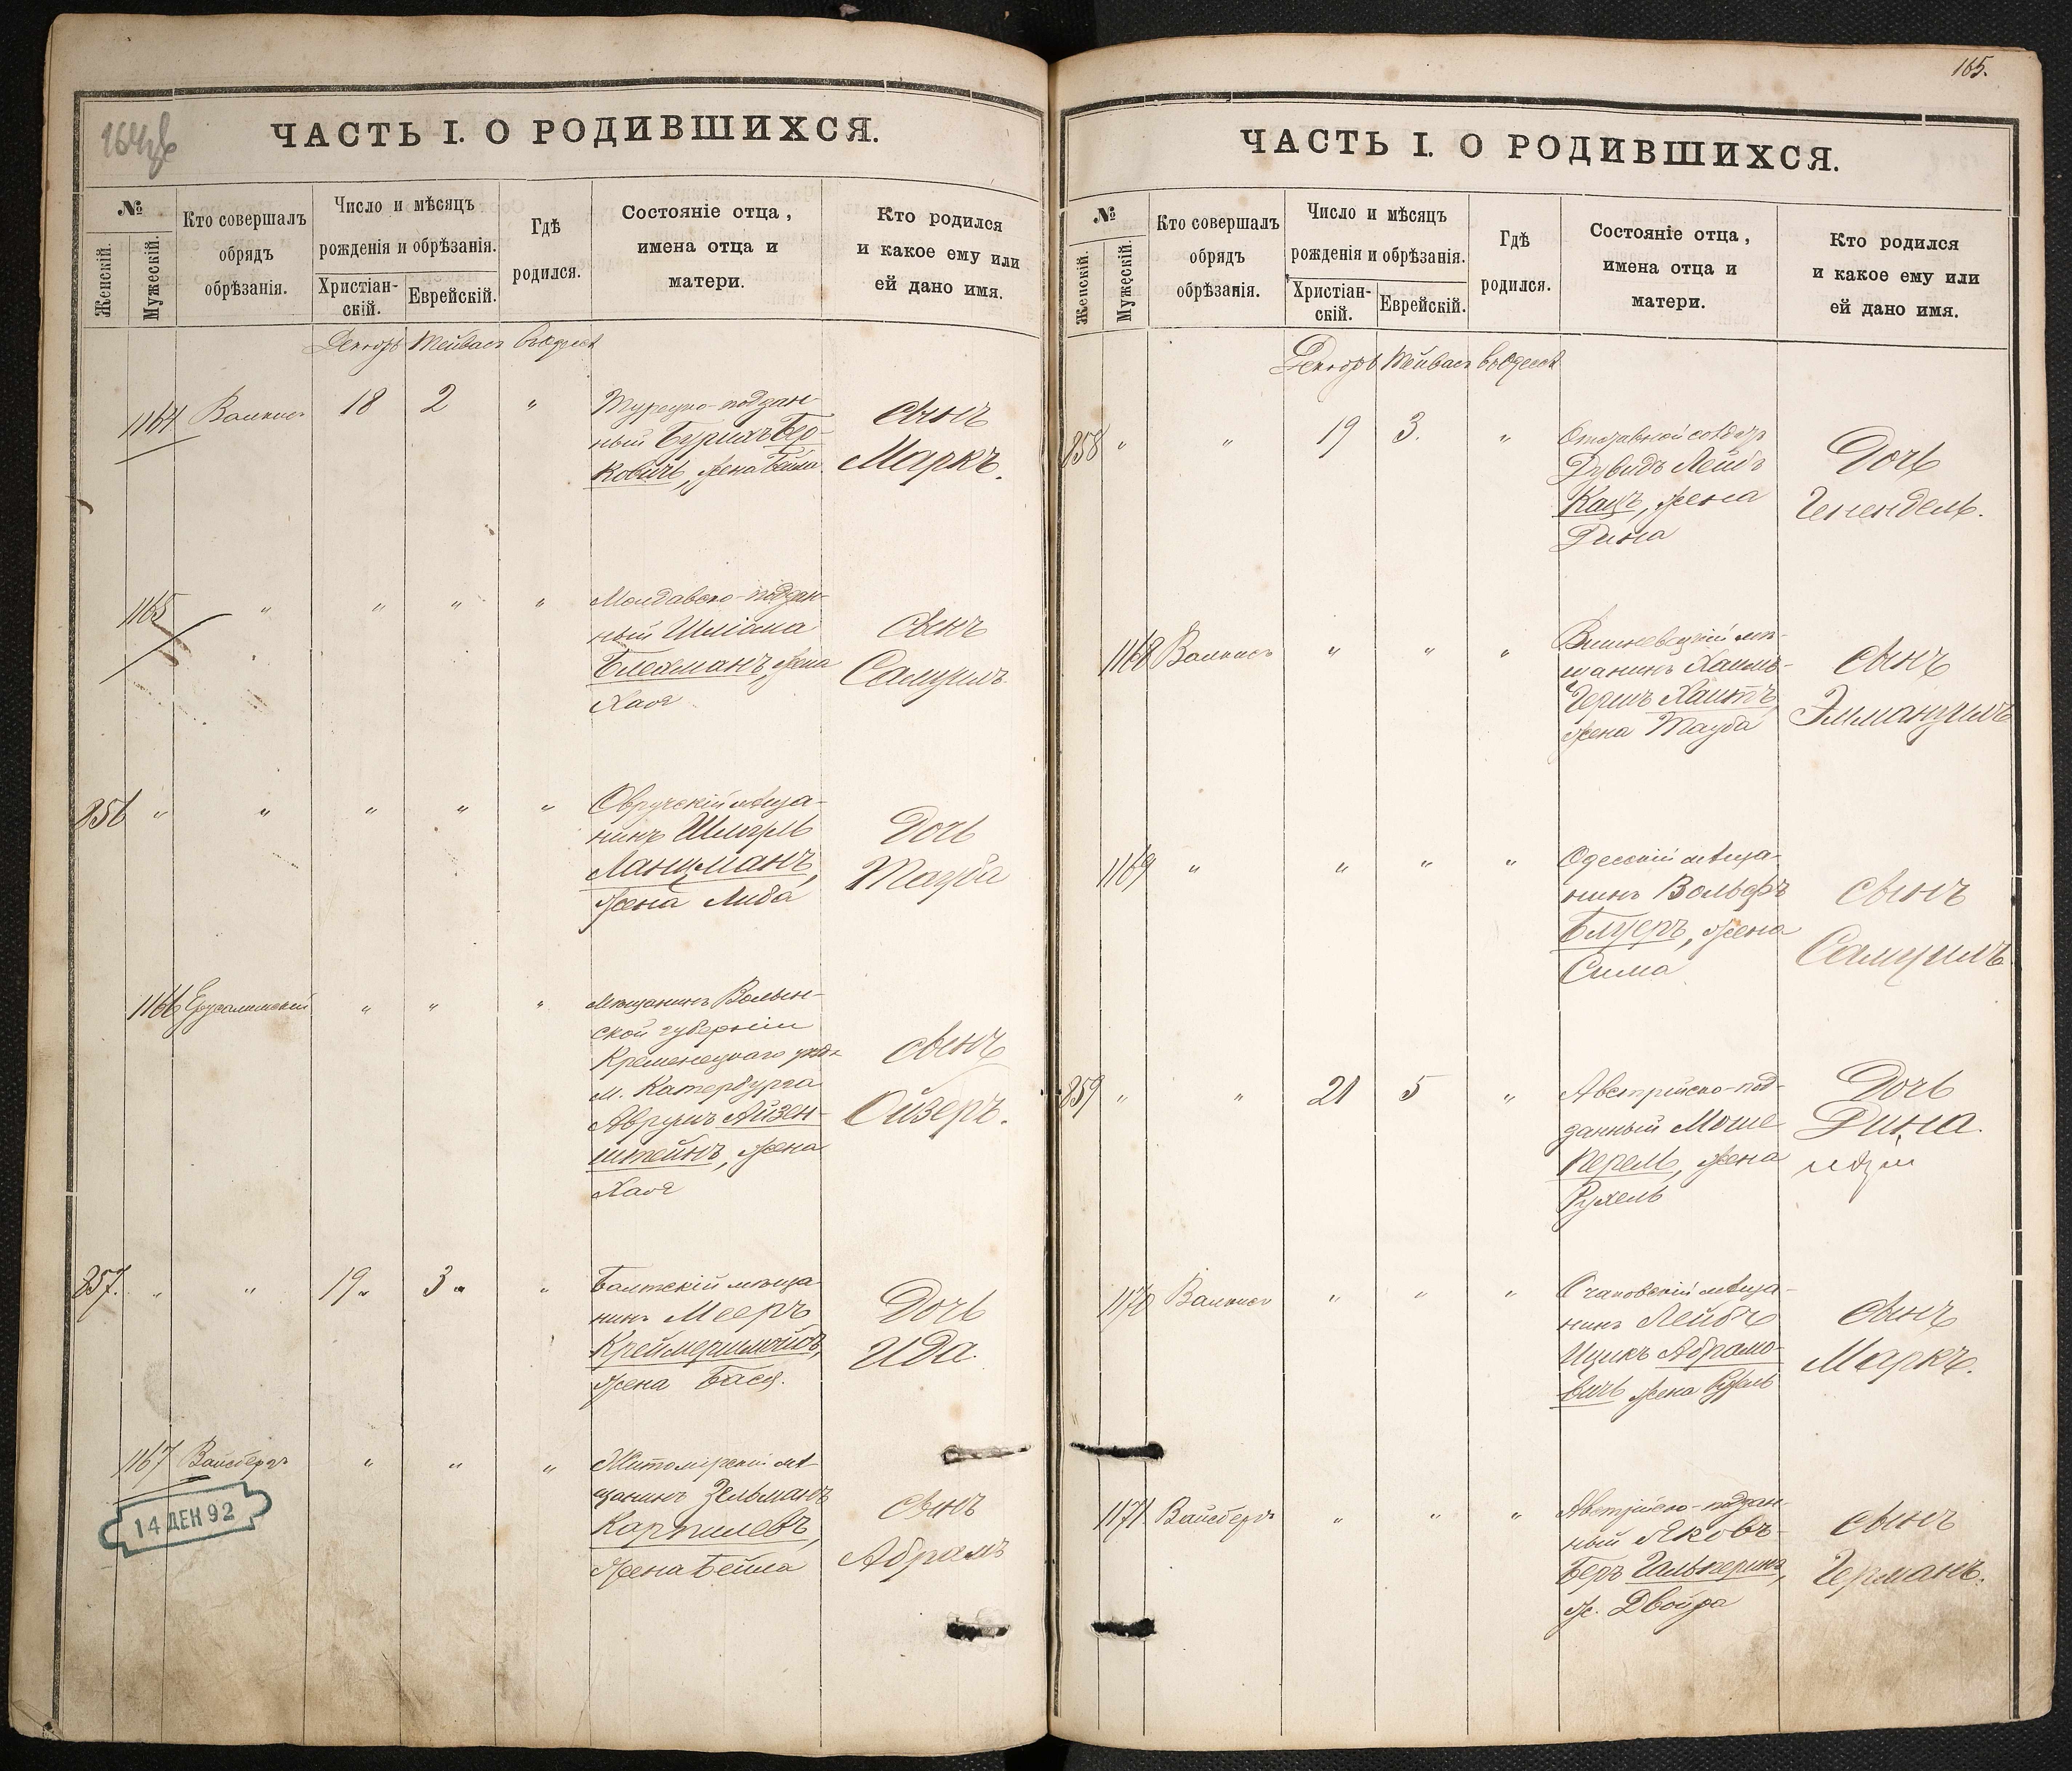 164 об
ЧАСТЬ I. О РОДИВШИХСЯ.
№
Женскій.
Мужескій.
Кто совершалъ
обрядъ
обрѣзанія.
Число и мѣсяцъ
рожденія и обрѣзанія.
Христіан-
скій.
Еврейскій.
Гдѣ
родился.
Состояніе отца,
имена отца и
матери.
Кто родился
и какое ему или
ей дано имя.
Декабрь Тейвасъ въ Одессѣ
1164 18 2 "
Турецко-поддан
ный Берихъ Бер-
ковичъ, жена Бейла
сынъ
Маркъ.
1165 " " " "
Молдавско-поддан-
ный Шліома
Блехманъ, жена
Хая
сынъ
Самуилъ
856 " " " " "
Овручскій мѣща-
нинъ Шмуль
Ланцманъ,
жена Либа
Дочь
Тауба
1166 Ерусалимскій " " "
Мѣщанинъ Волын-
ской губерніи
Кременецкаго уѣзда
м. Катербурга
Аврумъ Айзен-
штейнъ, жена
Хая
сынъ
Ойзеръ.
857. " " 19 " 3 " "
Балтскій мѣща
нинъ Мееръ
жена Бася.
Дочь
Ида.
1167 Вайсбергъ " " "
Житомірскій мѣ-
щанинъ Зельманъ
Карпилевъ,
жена Бейла
сынъ
Абрамъ
14 ДЕК 92
165.
ЧАСТЬ I. О РОДИВШИХСЯ.
№
Женскій.
Мужескій.
Кто совершалъ
обрядъ
обрѣзанія.
Число и мѣсяцъ
рожденія и обрѣзанія.
Христіан-
скій.
Еврейскій.
Гдѣ
родился.
Состояніе отца,
имена отца и
матери.
Кто родился
и какое ему или
ей дано имя.
Декабрь Тейвасъ въ Одессѣ
858 " " 19 3. "
Отставной солдатъ
Дувидъ Лейбъ
Кацъ, жена
Дина
Дочь
Генендель.
1168 " " "
Вишневецкій мѣ-
щанинъ Хаимъ-
Гершъ Хаитъ,
жена Тауба
сынъ
Эммануилъ
1169 " " " "
Одесскій мѣща-
нинъ Вольфъ
Блуеръ, жена
Сима
сынъ
Самуилъ
859 " " 21 5 "
Австрійско-под-
данный Моше
Перель, жена
Рухель
Дочь
Дина.
1170 " " "
Очаковскій мѣща-
нинъ Лейбъ
Ицикъ Абрамо-
вичъ жена Рухель
сынъ
Маркъ.
1171 Вайсбергъ " " "
Австрійско-поддан-
ный Яковъ-
Беръ Гальперинъ,
ж. Двойра
сынъ
Германъ.